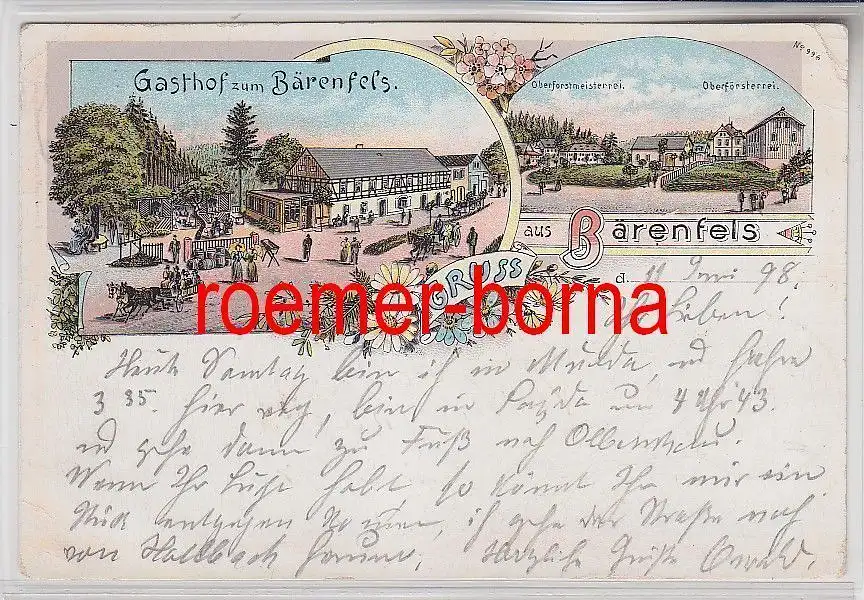 No 996
Gasthof zum Bärenfels.
Oberforstmeisterrei. Oberförsterrei.
aus Bärenfels
GRUSS
d. 11 Juni 98.
roemer-borna
Lieben!
Heute Sontag bin ich in Mulda, nd fahre
3 35. hier weg, bin in Sayda um 4 Uhr 43.
nd gehe dann zu Fuß nach Olbernhau.
Wenn Ihr Lust habt, so könnt Ihr mir ein
Stück entgegen kommen, ich gehe der Straße nach
von Hallbach herunter, Herzliche Grüße Oswald.